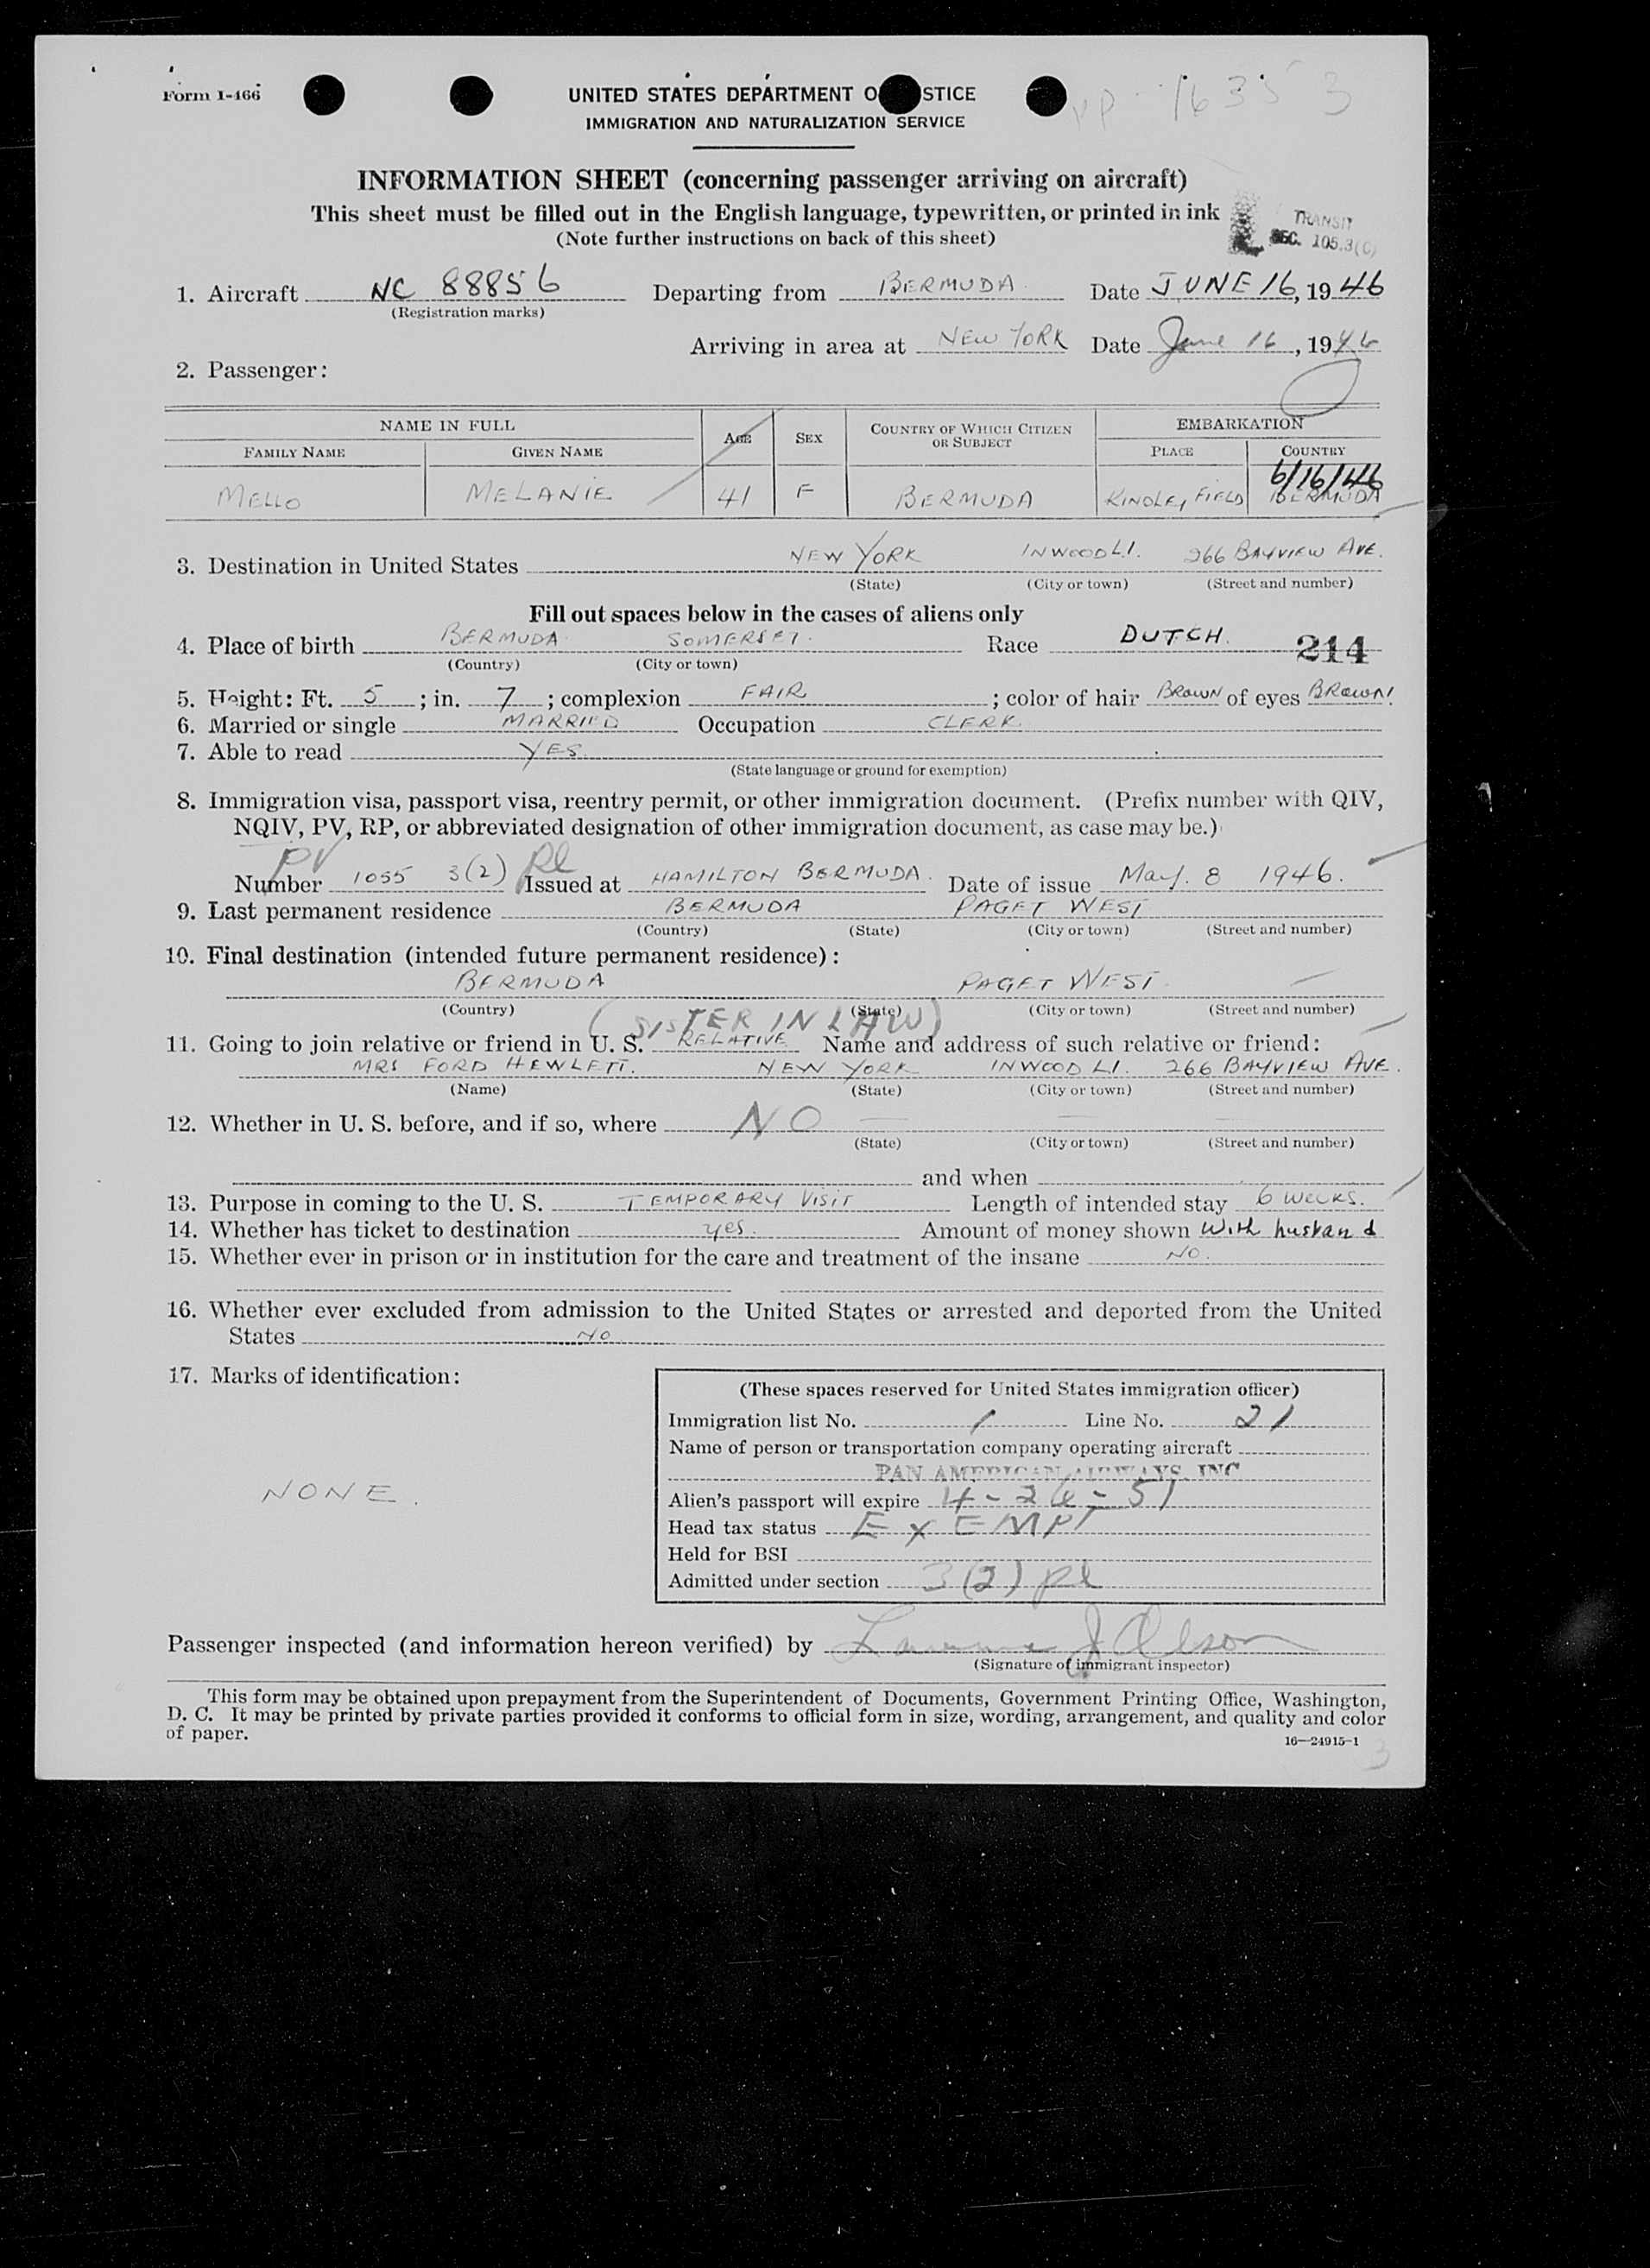 Form I-466
UNITED STATES DEPARTMENT O STICE
IMMIGRATION AND NATURALIZATION SERVICE
1635 3
INFORMATION SHEET (concerning passenger arriving on aircraft)
This sheet must be filled out in the English language, typewritten, or printed in ink
(Note further instructions on back of this sheet)
TRANSIT
SEC. 105.3(C)
1. Aircraft NC 88856 Departing from BERMUDA Date JUNE 16, 1946
(Registration marks)
Arriving in area at NEW YORK Date June 16, 1946
2. Passenger:
NAME IN FULL AGE SEX COUNTRY OF WHICH CITIZEN OR SUBJECT EMBARKATION
FAMILY NAME GIVEN NAME PLACE COUNTRY
6/16/46
MELLO MELANIE 41 F BERMUDA KINDLEY FIELD BERMUDA
3. Destination in United States NEW YORK INWOOD L.I. 266 BAYVIEW AVE.
(State) (City or town) (Street and number)
Fill out spaces below in the cases of aliens only
4. Place of birth BERMUDA SOMERSET. Race DUTCH. 214
(Country) (City or town)
5. Height: Ft. 5 ; in. 7 ; complexion FAIR ; color of hair BROWN of eyes BROWN
6. Married or single MARRIED Occupation CLERK
7. Able to read YES.
(State language or ground for exemption)
8. Immigration visa, passport visa, reentry permit, or other immigration document. (Prefix number with QIV,
NQIV, PV, RP, or abbreviated designation of other immigration document, as case may be.)
PV
Number 1055 3(2) Pl Issued at HAMILTON BERMUDA. Date of issue May. 8 1946.
9. Last permanent residence BERMUDA PAGET WEST
(Country) (State) (City or town) (Street and number)
10. Final destination (intended future permanent residence):
BERMUDA PAGET WEST.
(Country) (State) (City or town) (Street and number)
(SISTER IN LAW)
11. Going to join relative or friend in U. S. RELATIVE Name and address of such relative or friend:
MRS FORD HEWLETT. NEW YORK INWOOD LI. 266 BAYVIEW AVE.
(Name) (State) (City or town) (Street and number)
12. Whether in U. S. before, and if so, where NO
(State) (City or town) (Street and number)
and when
13. Purpose in coming to the U. S. TEMPORARY VISIT Length of intended stay 6 WEEKS.
14. Whether has ticket to destination yes. Amount of money shown With husband
15. Whether ever in prison or in institution for the care and treatment of the insane NO.
16. Whether ever excluded from admission to the United States or arrested and deported from the United
States NO
17. Marks of identification:
NONE.
(These spaces reserved for United States immigration officer)
Immigration list No. 1 Line No. 21
Name of person or transportation company operating aircraft
PAN AMERICAN AIRWAYS, INC
Alien's passport will expire 4-26-51
Head tax status EXEMPT
Held for BSI
Admitted under section 3(2) Pl
Passenger inspected (and information hereon verified) by J Olson
(Signature of immigrant inspector)
This form may be obtained upon prepayment from the Superintendent of Documents, Government Printing Office, Washington,
D. C. It may be printed by private parties provided it conforms to official form in size, wording, arrangement, and quality and color
of paper.
16—24915-1
3